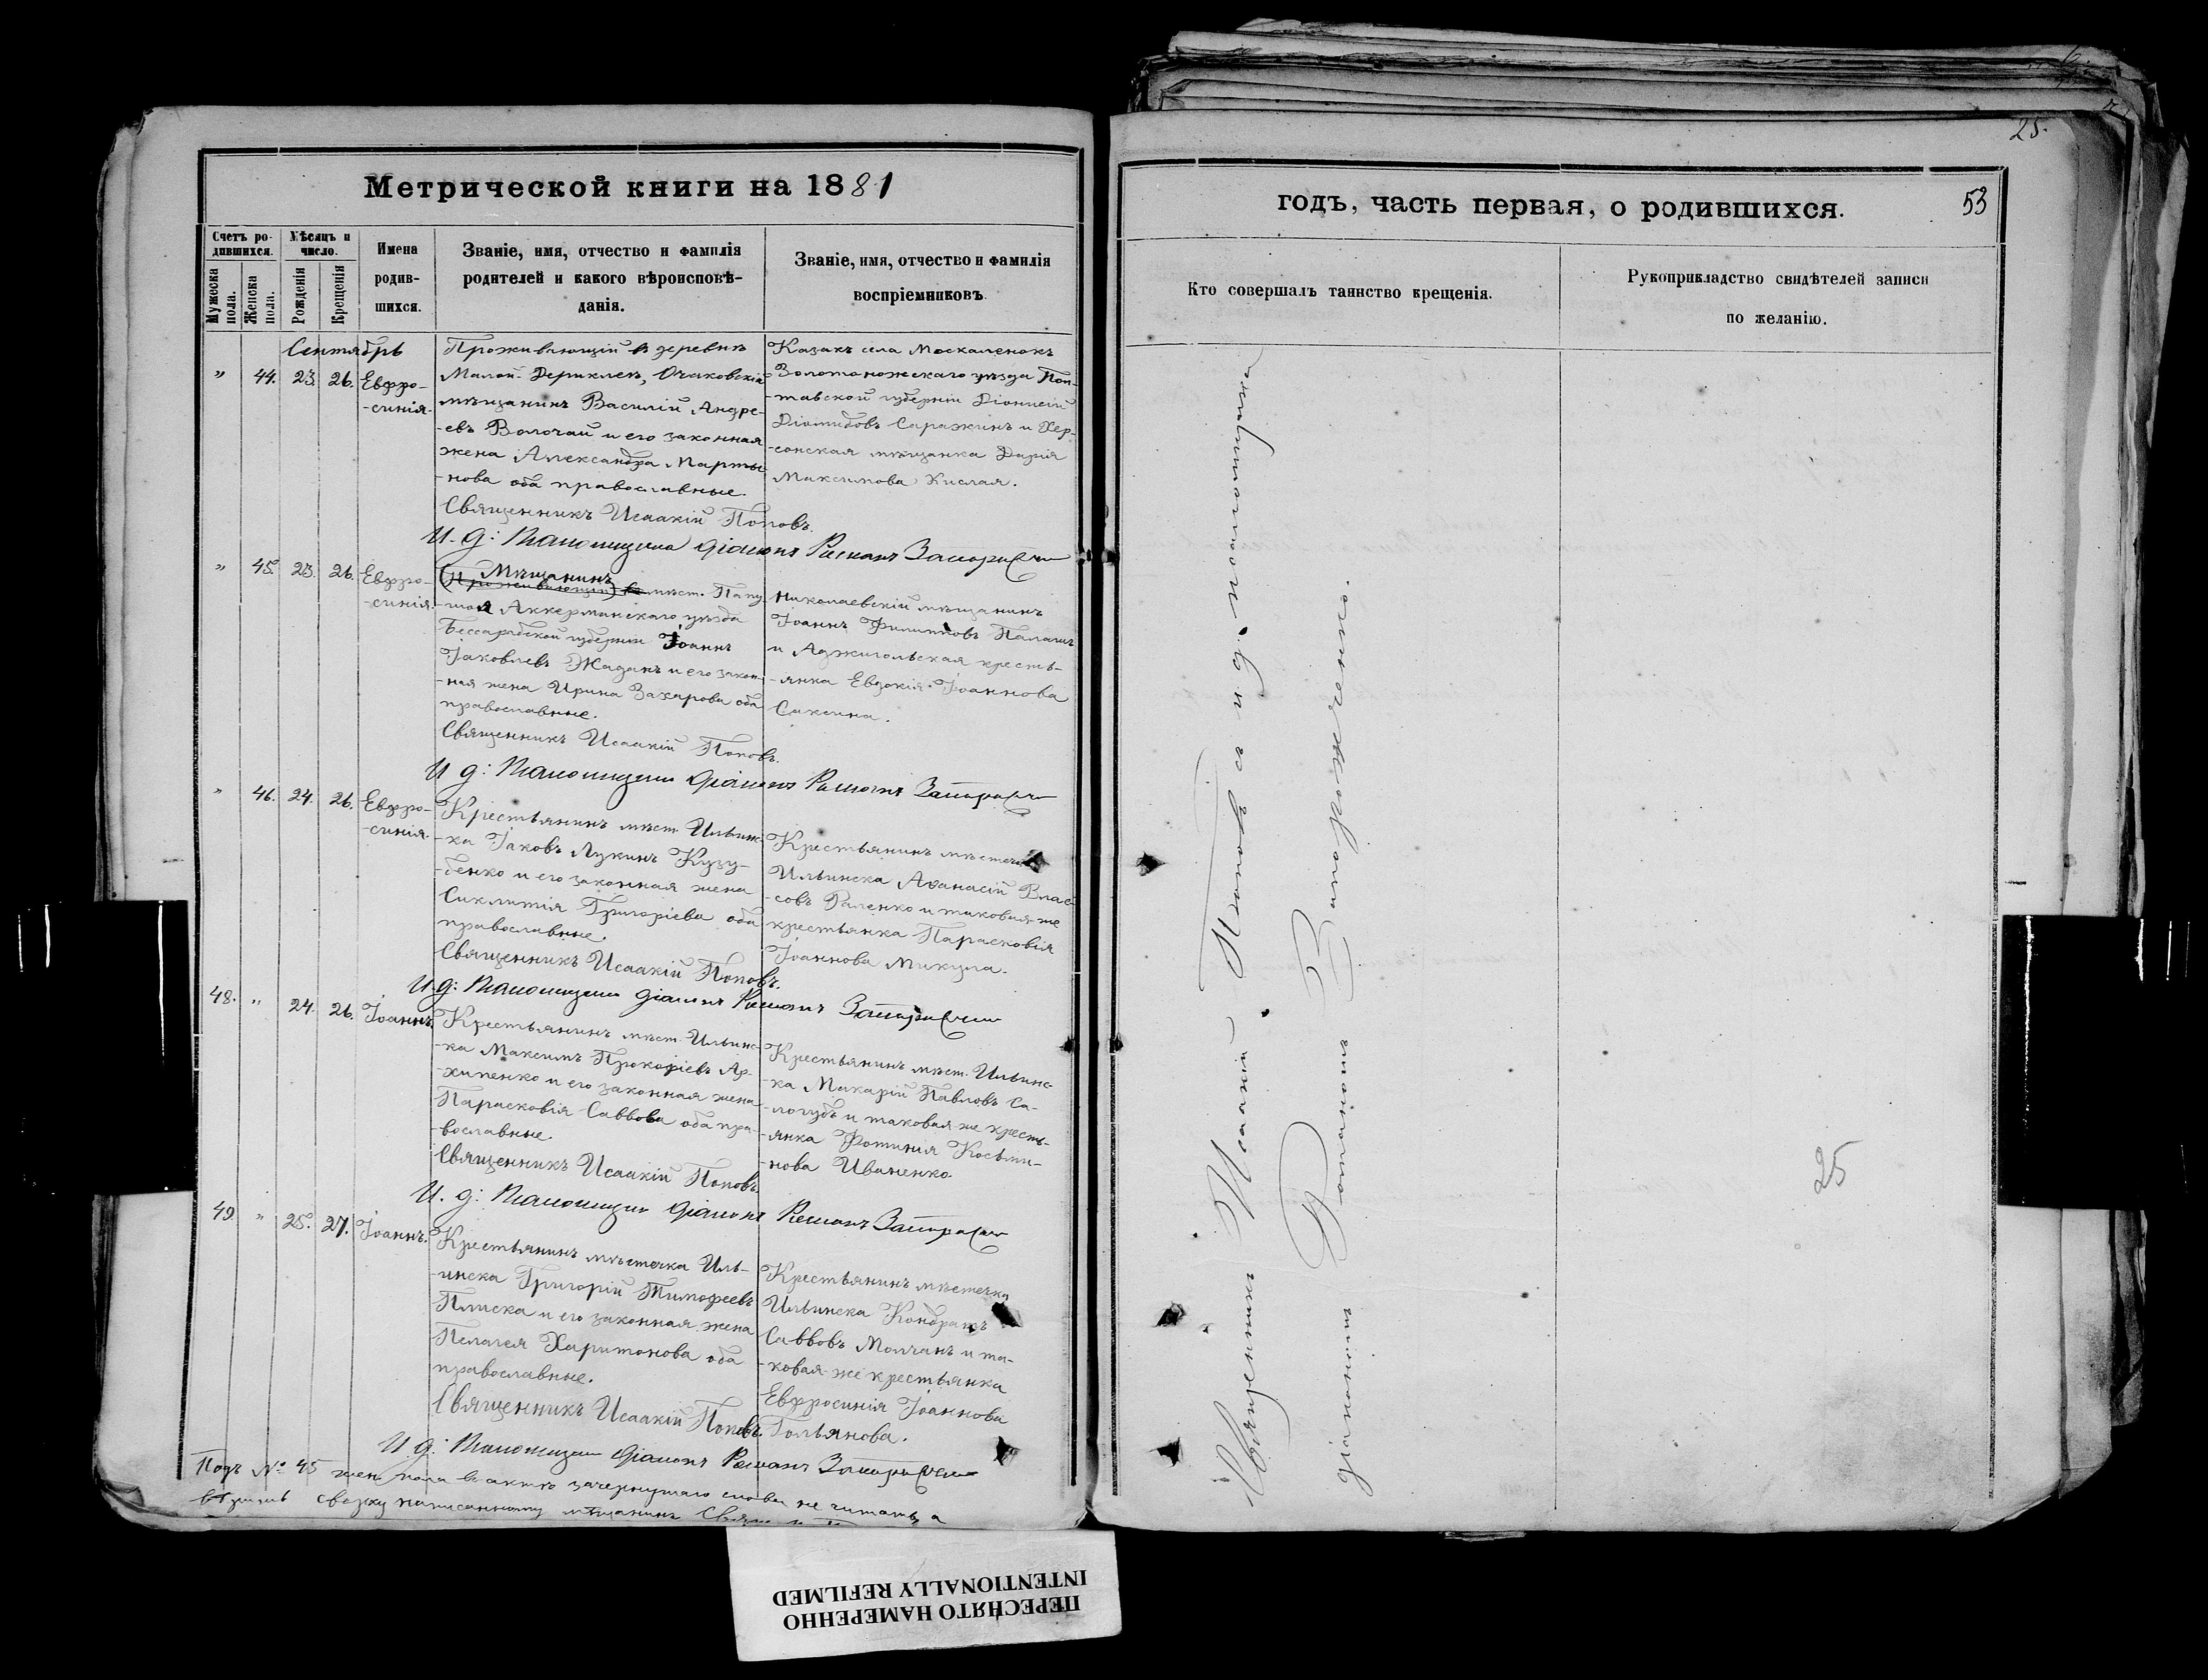 Метрической книги на 1881
Счетъ ро-
дившихся.
Мѣсяцъ и
число.
Мужеска
пола.
Женска
пола.
Рожденія
Крещенія
Имена
родив-
шихся.
Званіе, имя, отчество и фамилія
родителей и какого вѣроисповѣ-
данія.
Званіе, имя, отчество и фамилія
воспріемниковъ
Сентябрь
" 44. 23. 26. Евфро-
-синія.
Проживающій в деревнѣ
Малой-Дериклеѣ, Очаковскій
мѣщанинъ Василій Андре-
-евъ Волочай и его законная
жена Александра Марты-
-нова оба православные.
Священникъ Исаакій Поповъ.
И. д: Псаломщика діаконъ Романъ
Казакъ села Москаленокъ
Золотоножскаго уѣзда Пол-
-тавской губерніи Діонисій
Діомидовъ Саражинъ и Хер-
-сонская мѣщанка Дарія
Максимова Кислая.
" 45. 23. 26. Евфро-
-синія.
Мѣщанинъ
(Проживающій) в мѣст. Папу-
-шоя Аккерманскаго уѣзда
Бессарабской губерніи Іоаннъ
Іаковлевъ Жаданъ и его закон-
-ная жена Ирина Захарова оба
православные.
Священникъ Исаакій Поповъ.
И д: Псаломщика діаконъ Романъ
Николаевскій мѣщанинъ
Іоаннъ Филипповъ Палагич
и Аджигольская кресть-
-янка Евдокія Іоаннова
Саксина.
" 46. 24. 26. Евфро-
-синія.
Крестьянинъ мѣст. Ильинс-
-ка Іаковъ Лукинъ Кузу-
-бенко и его законная жена
Сиклитія Григоріева оба
православные.
Священникъ Исаакій Поповъ.
И д: Псаломщика діаконъ Романъ
Крестьянинъ мѣстечка
Ильинска Аѳанасій Влас-
-совъ Раленко и таковая-же
крестьянка Парасковія
Іоаннова Микула.
48. " 24. 26. Іоаннъ.
Крестьянинъ мѣст. Ильинс-
-ка Максимъ Прокофіевъ Ар-
-хипенко и его законная жена
Парасковія Саввова оба пра-
-вославные.
Священникъ Исаакій Поповъ.
И. д: Псаломщика діаконъ Романъ
Крестьянинъ мѣст. Ильинс-
-ка Макарій Павловъ Са-
-логубъ и таковая-же кресть-
-янка Фотинія Косьми-
-нова Иваненко.
49. " 25. 27. Іоаннъ.
Крестьянинъ мѣстечка Иль-
-инска Григорій Тимофеевъ
Плиска и его законная жена
Пелагея Харитонова оба
православные.
Священникъ Исаакій Поповъ.
И д: Псаломщика діаконъ Романъ
Крестьянинъ мѣстечка
Ильинска Кондратъ
Саввовъ Молчанъ и та-
-ковая-же крестьянка
Евфросинія Іоаннова
Гольянова.
Подъ № 45 жен. пола в актѣ зачеркнутаго слова не читать, а
сверху написанному мѣщанинъ
25.
годъ, часть первая, о родившихся.
53
Кто совершалъ таинство крещенія.
Рукоприкладство свидѣтелей записи
по желанію.
Священникъ Исаакій Поповъ съ и. д. псаломщика
діакономъ Романомъ Запорожченко.
25
ПЕРЕСНЯТО НАМЕРЕННО
INTENTIONALLY REFILMED